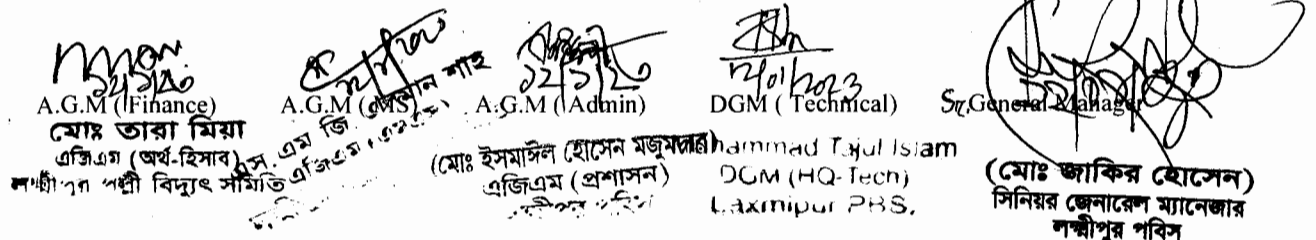 12/01/2023
A.G.M (Finance)
মোঃ তারা মিয়া
এজিএম (অর্থ-হিসাব)
লক্ষ্মীপুর পল্লী বিদ্যুৎ সমিতি
A.G.M (MS)
এস. এম জি. শাহ
এজিএম
A.G.M (Admin)
(মোঃ ইসমাঈল হোসেন মজুমদার)
এজিএম (প্রশাসন)
DGM ( Technical)
Tajul Islam
DGM (HQ-Tech)
Laxmipur PBS.
Sr.General Manager
(মোঃ জাকির হোসেন)
সিনিয়র জেনারেল ম্যানেজার
লক্ষ্মীপুর পবিস